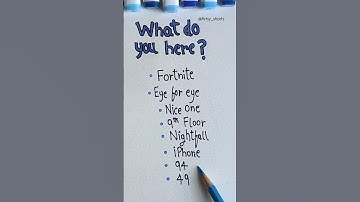 @Artsy_shorts
What do
you here?
• Fortnite
• Eye for eye
• Nice one
• 9th Floor
• Nightfall
• iPhone
• 94
• 49